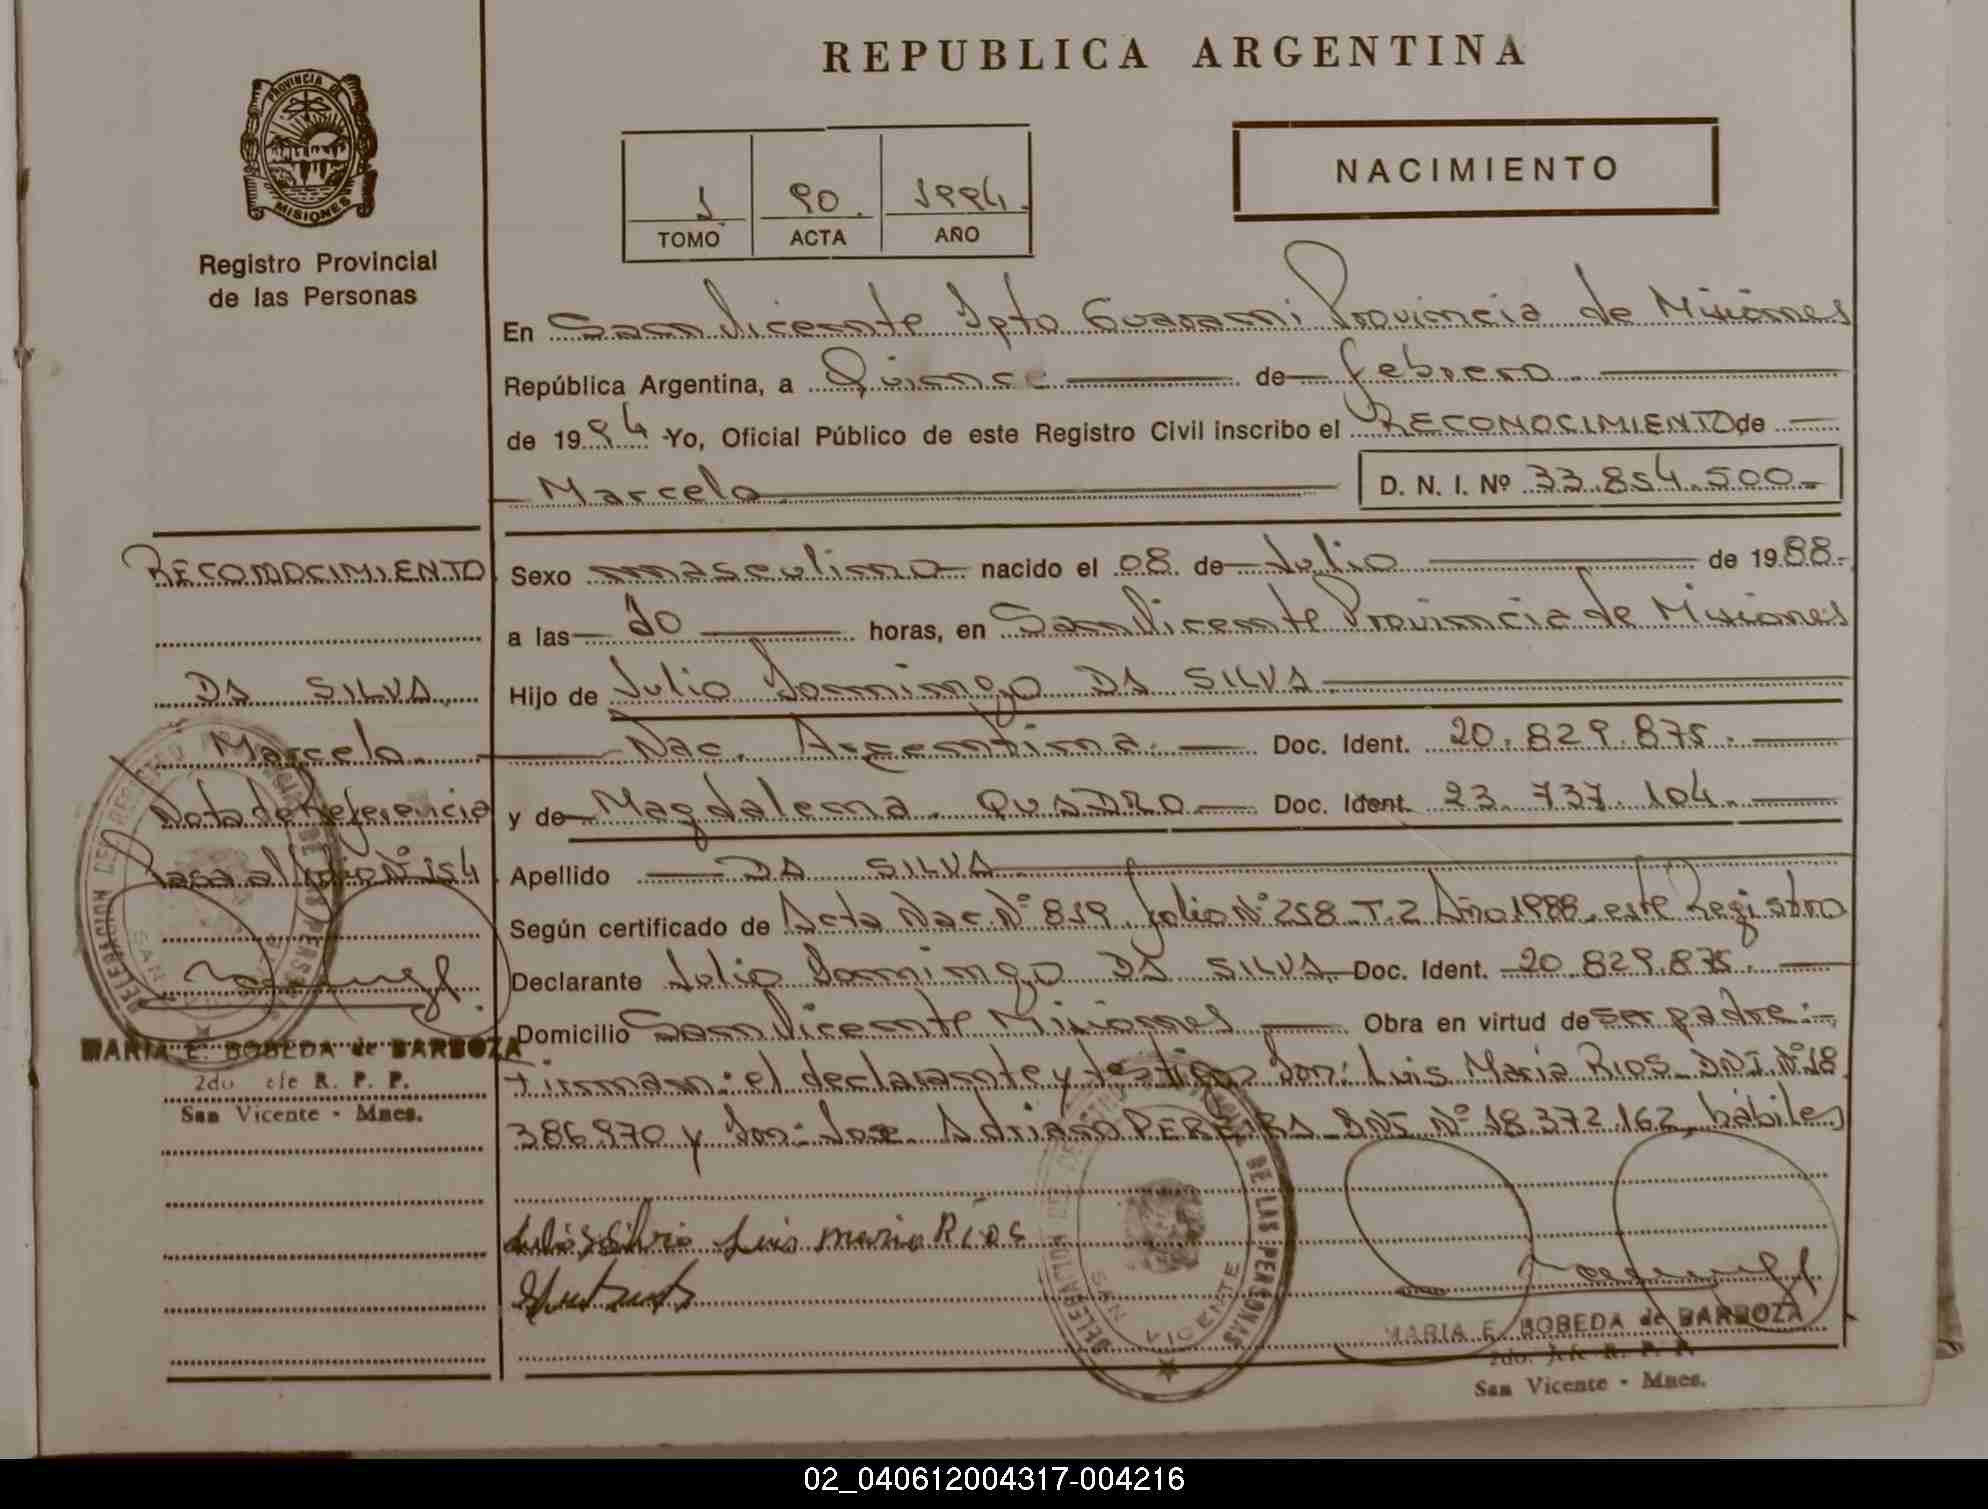 REPUBLICA ARGENTINA
PROVINCIA DE
MISIONES
Registro Provincial
de las Personas
1 90. 1994.
TOMO ACTA AÑO
NACIMIENTO
En San Vicente Dpto Guarani Provincia de Misiones
República Argentina, a Quince de febrero.
de 1994 -Yo, Oficial Público de este Registro Civil inscribo el RECONOCIMIENTO de
Marcelo D. N. I. Nº 33.854.500-
RECONOCIMIENTO
DA SILVA.
Marcelo.
Nota de Referencia
Pasa al folio Nº 154
MARIA E. BOBEDA de BARBOZA
2do Jefe R. P. P.
San Vicente - Mnes.
Sexo masculino nacido el 08 de Julio de 1988.-
a las horas, en San Vicente Provincia de Misiones
Hijo de Julio Domingo DA SILVA
Nac. Argentina. Doc. Ident. 20.829.875.
y de Magdalena. QUADRO Doc. Ident. 23.737.104.
Apellido DA SILVA
Según certificado de Acta Nac. Nº 819. folio Nº 258 T.2 Año 1988. este Registro
Declarante Julio Domingo DA SILVA Doc. Ident. 20.829.875.
Domicilio San Vicente Misiones Obra en virtud de ser padre:-
Firman: el declarante y testigos Don: Luis María RIOS- DNI. Nº 18
386970 y Don: Jose Adriano PEREIRA- DNI Nº 18.372.162, hábiles
Luis Mario Rios
DELEGACION DEL REGISTRO PROVINCIAL DE LAS PERSONAS
SAN VICENTE
MARIA E. BOBEDA de BARBOZA
2do. Jefe R. P. P.
San Vicente - Mnes.
02_040612004317-004216